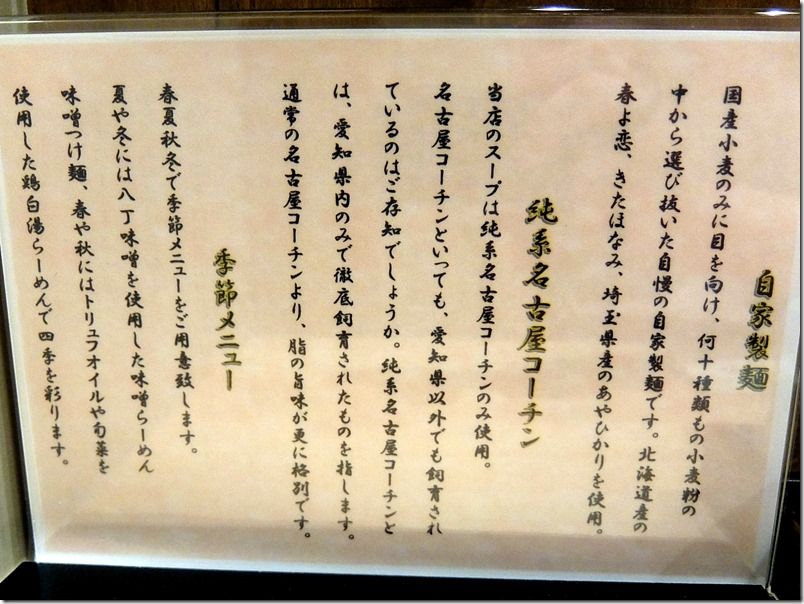 自家製麺
国産小麦のみに目を向け、何十種類もの小麦粉の
中から選び抜いた自慢の自家製麺です。北海道産の
春よ恋、きたほなみ、埼玉県産のあやひかりを使用。
純系名古屋コーチン
当店のスープは純系名古屋コーチンのみ使用。
名古屋コーチンといっても、愛知県以外でも飼育され
ているのはご存知でしょうか。純系名古屋コーチンと
は、愛知県内のみで徹底飼育されたものを指します。
通常の名古屋コーチンより、脂の旨味が更に格別です。
季節メニュー
春夏秋冬で季節メニューをご用意致します。
夏や冬には八丁味噌を使用した味噌らーめん
味噌つけ麺、春や秋にはトリュフオイルや旬菜を
使用した鶏白湯らーめんで四季を彩ります。